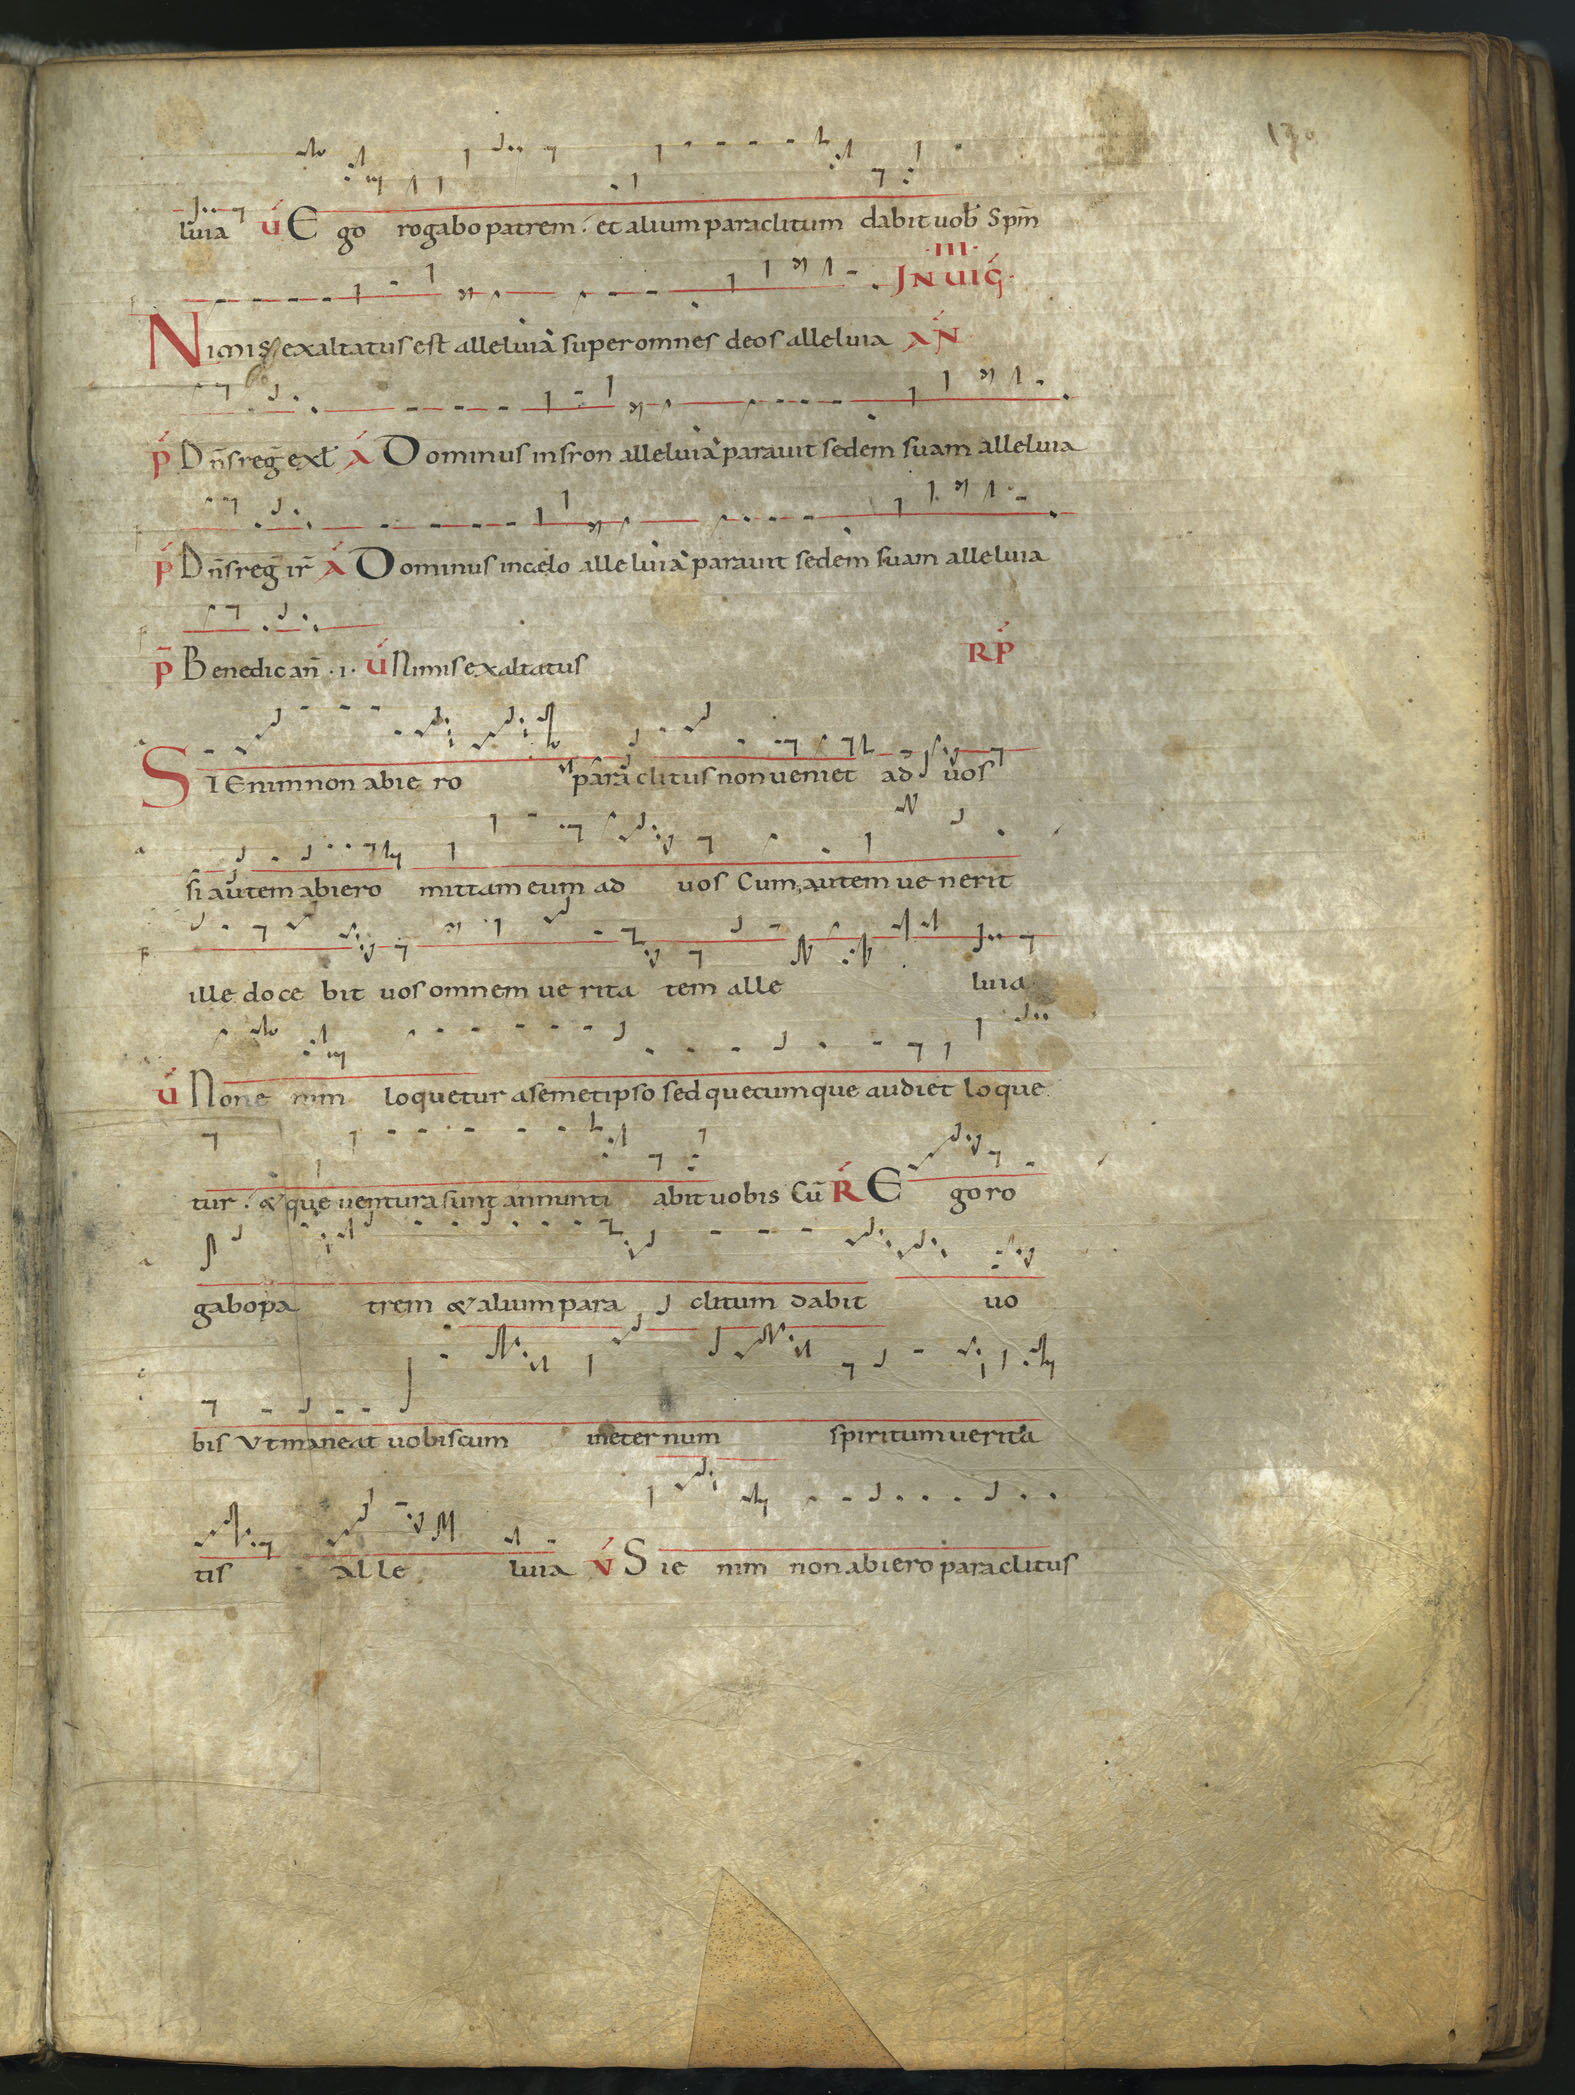 130
luia V́ Ego rogabo patrem. et alium paraclitum dabit uob̄ Spm̄
·III·
IN UIG̃.
Nimis exaltatus est alleluia super omnes deos alleluia AÑ
P̃ Dn̄s reg̃ exl̄ Á Dominus in sion alleluia parauit sedem suam alleluia
P̃ Dn̄s reg̃ ir̄ Á Dominus in celo alleluia parauit sedem suam alleluia
P̃ Benedic an̄ ·i· V́ Nimis exaltatus RP̃
SI Enim non abiero paraclitus non ueniet ad uos
si autem abiero mittam eum ad uos Cum autem uenerit
ille docebit uos omnem ueritatem alleluia
V́ Non enim loquetur a semetipso sed quecumque audiet loque
tur. & que uentura sunt annuntiabit uobis Cū Ŕ Ego ro
gabo patrem & alium paraclitum dabit uo
bis Vt maneat uobiscum ineternum spiritum uerita
tis alleluia V́ Si enim non abiero paraclitus